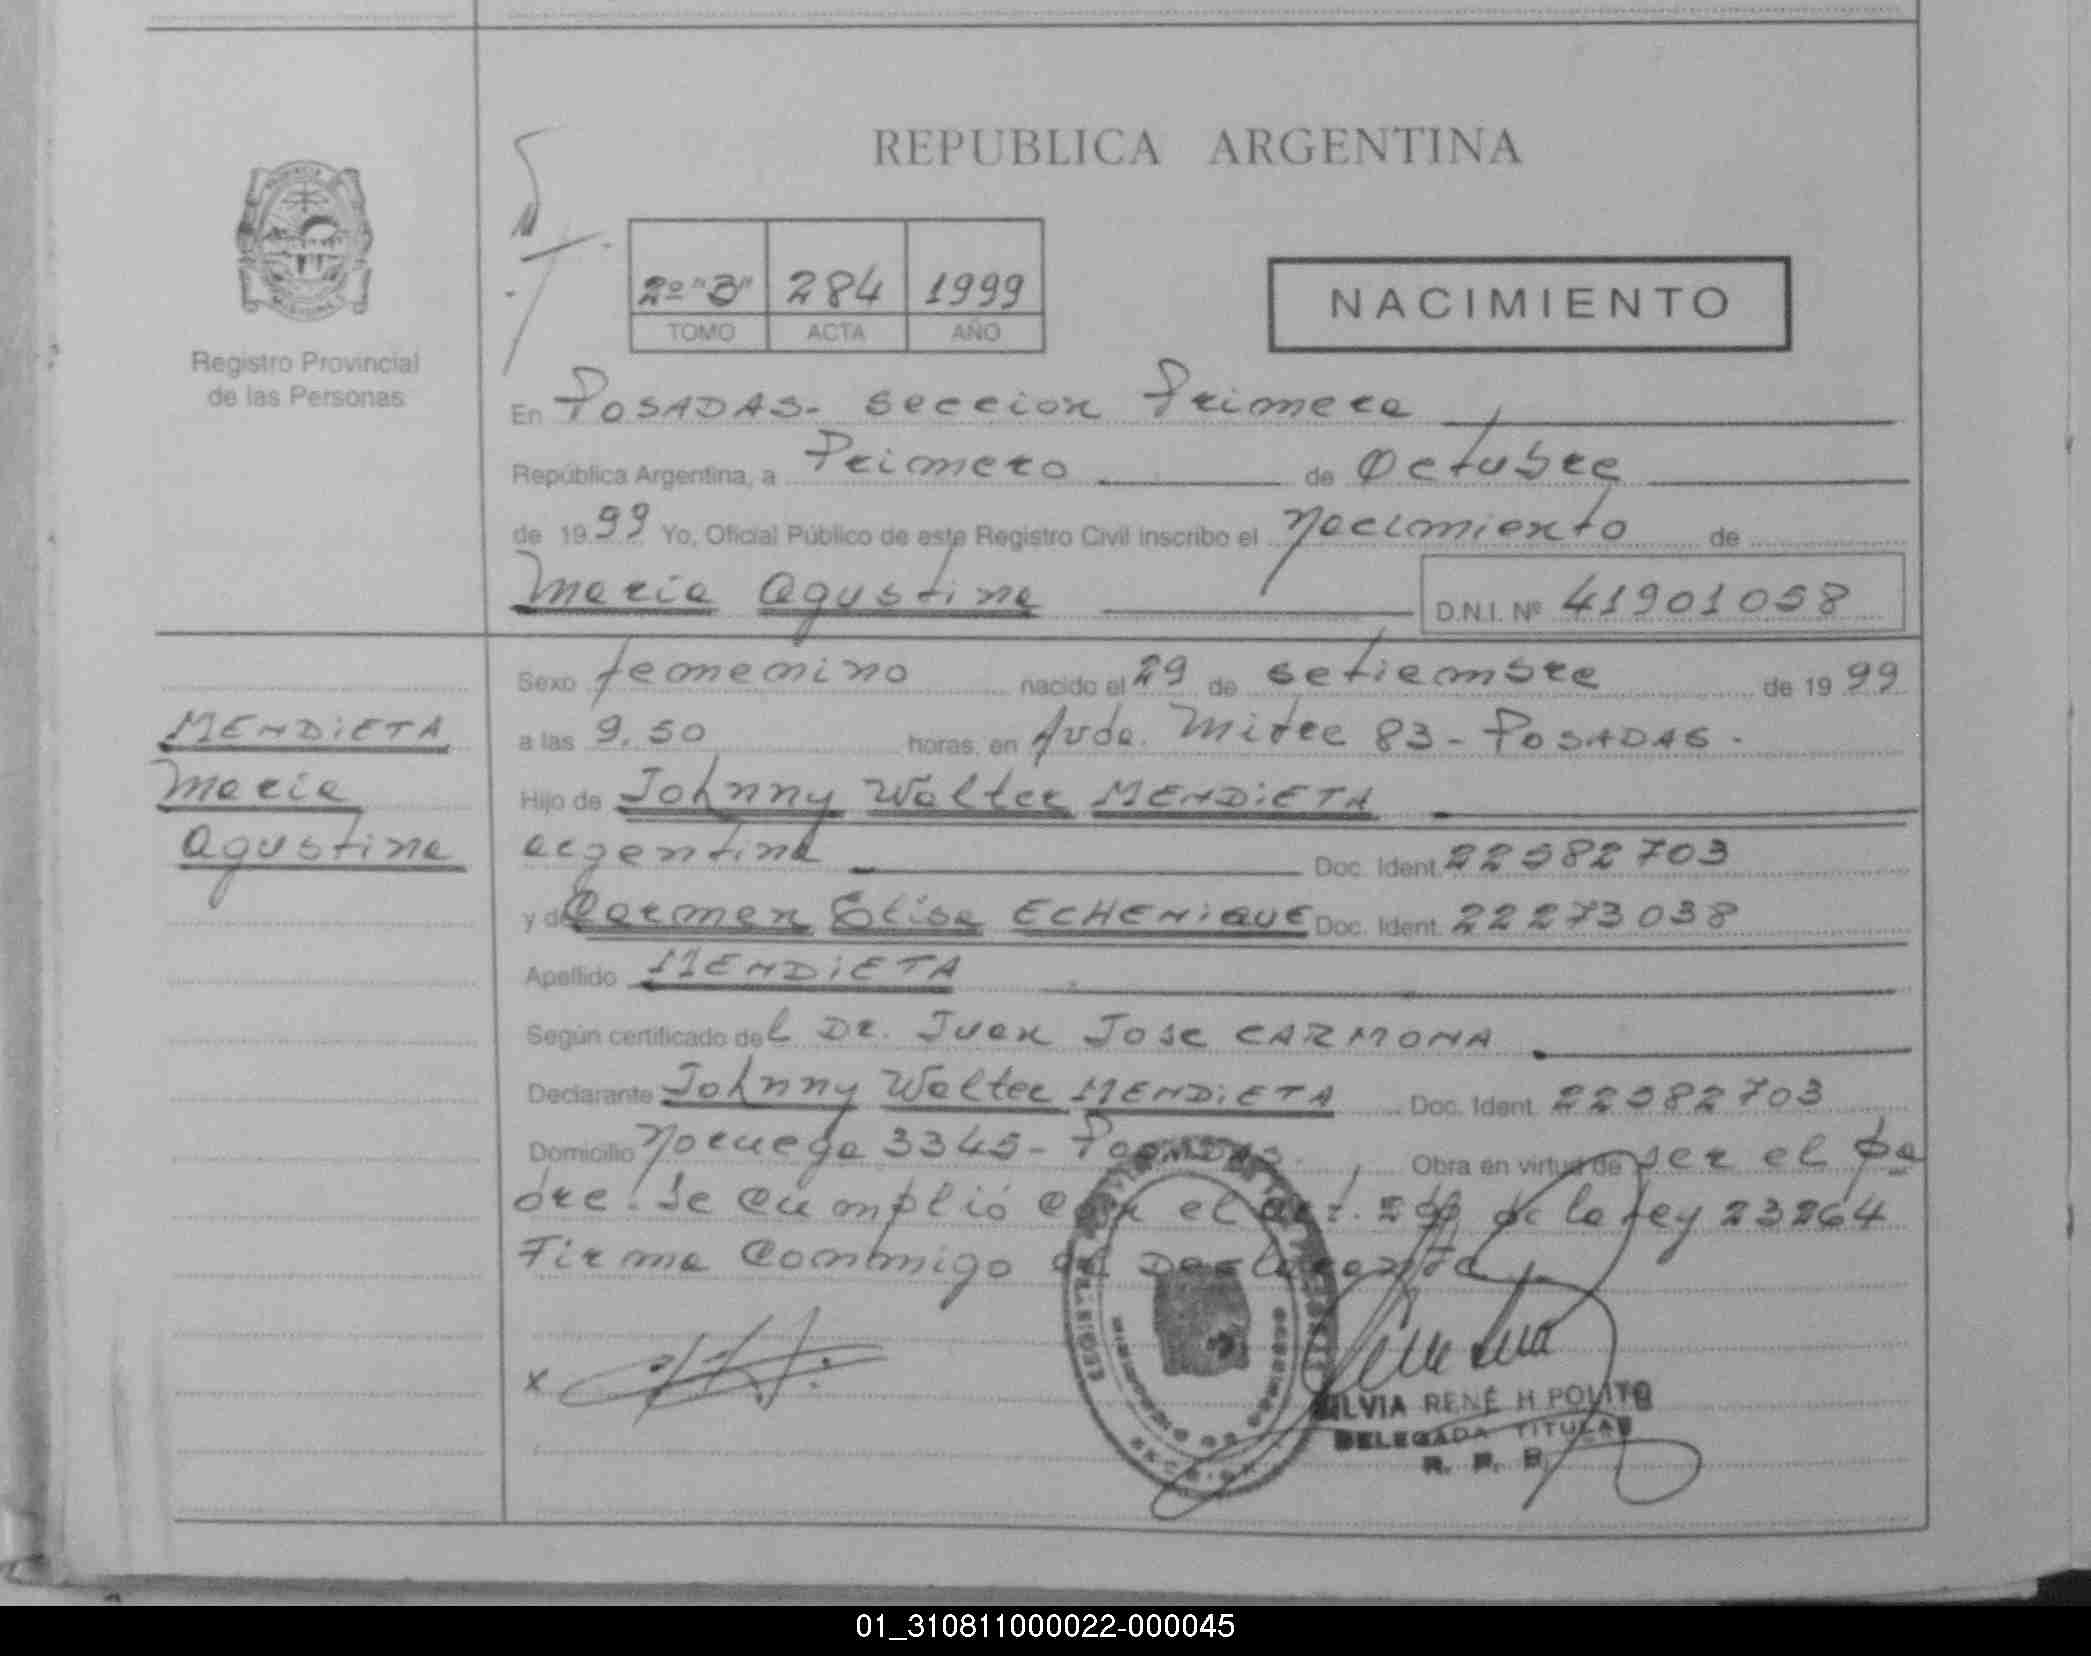 REPUBLICA ARGENTINA
2º "B" 284 1999
TOMO ACTA AÑO
NACIMIENTO
Registro Provincial
de las Personas
En POSADAS - Seccion Primera
República Argentina, a Primero de Octubre
de 1999 Yo, Oficial Público de este Registro Civil inscribo el Nacimiento de
Maria Agustina D.N.I. Nº 41901058
MENDiETA
Maria
Agustina
Sexo femenino nacido el 29 de setiembre de 1999
a las 9,50 horas, en Avda. Mitre 83 - POSADAS -
Hijo de Johnny Walter MENDiETA
argentina Doc. Ident. 22582703
y de Carmen Elisa ECHENiQUE Doc. Ident. 22273038
Apellido MENDiETA
Según certificado del Dr. Juan Jose CARMONA
Declarante Johnny Walter MENDiETA Doc. Ident. 22582703
Domicilio Noruega 3345 - POSADAS. Obra en virtud de ser el pa
dre. Se cumplió con el art. de la Ley 23264
Firma Conmigo el Declarante
x
SILVIA RENÉ H POLITO
DELEGADA TITULAR
R. P. P.
01_310811000022-000045